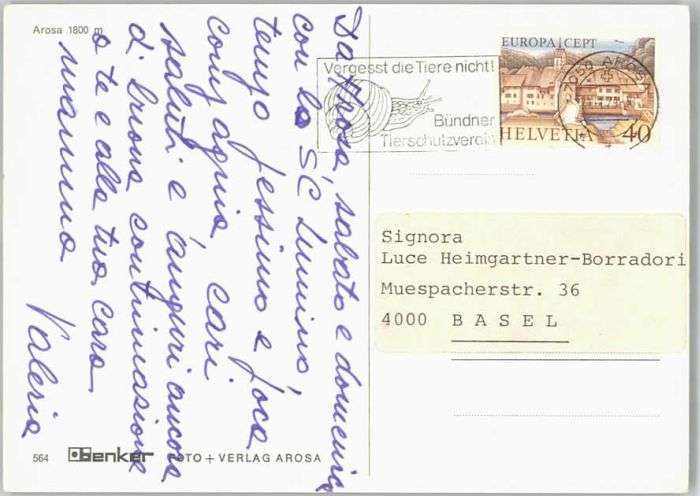 Arosa 1800 m
Da Arosa, sabato e domenica
con lo SC Lumino,
tempo pessimo e poca
compagnia cari
saluti e auguri ancora
di buona continuazione
a te e alla tua cara
mamma
Valeria
564 Benker FOTO + VERLAG AROSA
Vergesst die Tiere nicht!
Bündner
Tierschutzverein
EUROPA CEPT
7050 AROSA
HELVETIA 40
Signora
Luce Heimgartner-Borradori
Muespacherstr. 36
4000 BASEL